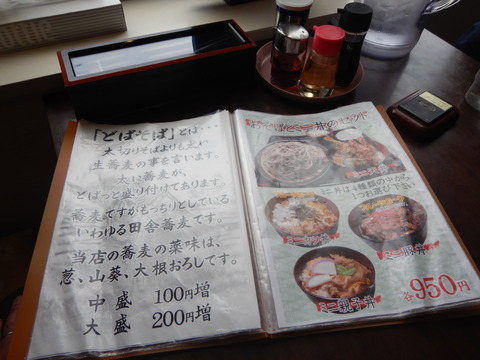 「どばそば」とは・・・
太切りそばよりも太い
生蕎麦の事を言います。
太い蕎麦が、
どばっと盛り付けてあります。
蕎麦ですがもっちりとしている
いわゆる田舎蕎麦です。
当店の蕎麦の薬味は、
葱、山葵、大根おろしです。
中盛 100円増
大盛 200円増
おそばとミニ丼のセット
ミニ丼は4種類の中から
1つお選び下さい
ミニカツ丼
ミニ豚丼
ミニ親子丼
各950円